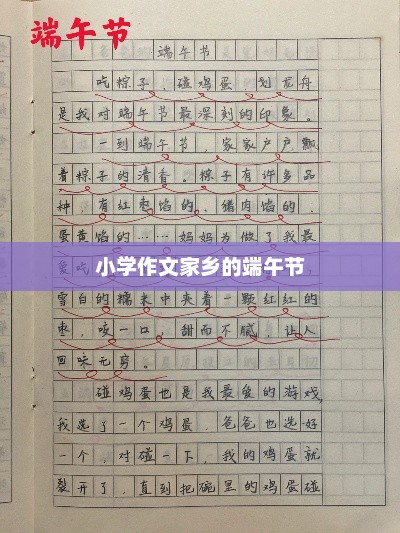 端午节
端午节
吃粽子，碰鸡蛋，划龙舟
是我对端午节最深刻的印象。
一到端午节，家家户户飘
着粽子的清香。粽子有许多品
种，有红枣馅的、猪肉馅的、
蛋黄馅的……妈妈为做了我最
小学作文家乡的端午节
雪白的糯米中夹着一颗红红的
枣，咬一口，甜而不腻，让人
回味无穷。
碰鸡蛋也是我最爱的游戏，
我选了一个鸡蛋，爸爸也选好
一个，对碰一下，我的鸡蛋就
裂开了，直到把碗里的鸡蛋碰